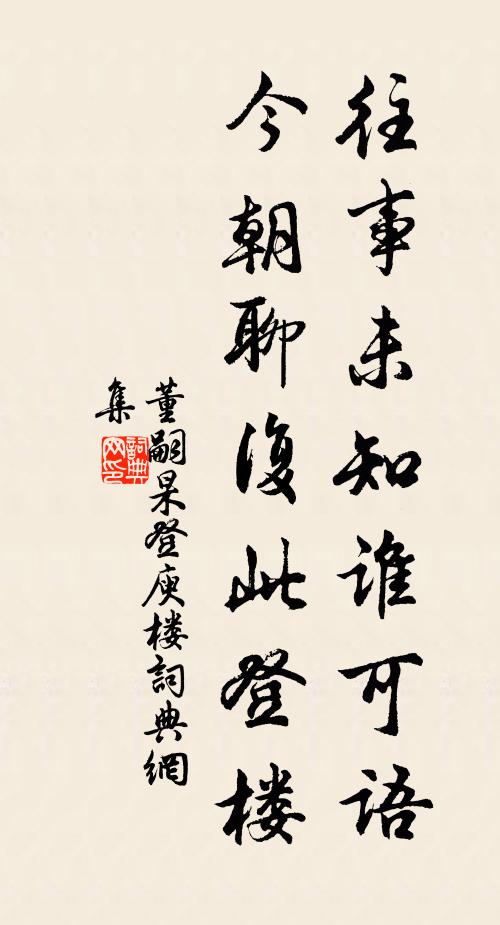 往事未知谁可语
今朝聊復此登楼
董嗣杲登庾楼詞典網
集
詞典网印